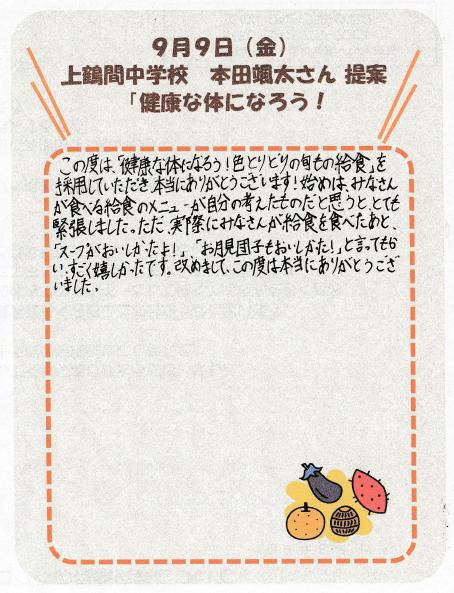 9月9日（金）
上鶴間中学校　本田颯太さん 提案
「健康な体になろう！
この度は、「健康な体になろう！色とりどりの旬もの給食」を
採用していただき、本当にありがとうございます！始めは、みなさん
が食べる給食のメニューが自分の考えたものだと思うと、とても
緊張しました。ただ、実際にみなさんが給食を食べたあと、
「スープがおいしかったよ！」、「お月見団子もおいしかった！」と言ってもら
い、すごく嬉しかったです。改めまして、この度は本当にありがとうござ
いました。